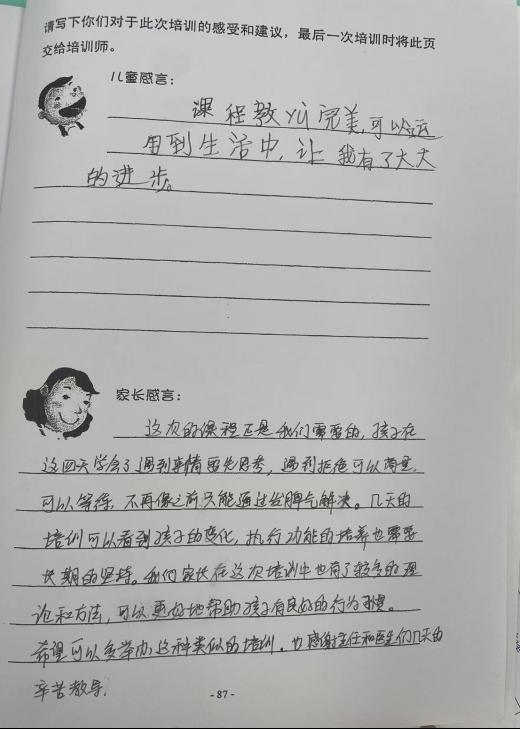 请写下你们对于此次培训的感受和建议，最后一次培训时将此页
交给培训师。
儿童感言：
课程教yù完美,可以运
用到生活中,让我有了大大
的进步。
家长感言：
这次的课程正是我们需要的,孩子在
这四天学会了遇到事情要先思考,遇到拒绝可以商量,
可以等待,不再像之前只能通过发脾气解决。几天的
培训可以看到孩子的变化,执行功能的培养也需要
长期的坚持。我们家长在这次培训中也有了较多的理
论和方法,可以更好地帮助孩子有良好的行为习惯。
希望可以多举办这种类似的培训。也感谢主任和医生们几天的
辛苦教导.
- 87 -